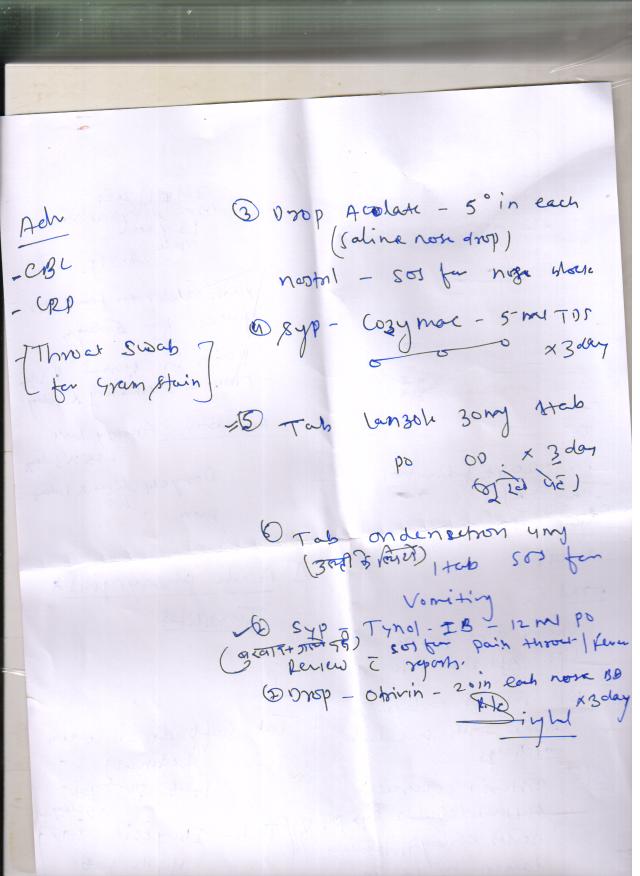 Adv
- CBC
- CRP
- [Throat Swab
for Gram stain]
③ Drop Acolate - 5° in each
(Saline nose drop)
nostril - SOS for nose block
④ Syp - Cozymac - 5 ml TDS
x 3 day
⑤ Tab Lanzole 30mg 1tab
po OD x 3 day
(भूखे पेट)
⑥ Tab ondensetron 4mg
(उल्टी के लिये) 1tab SOS for
Vomiting
Syp - Tynol-IB - 12 ml po
(बुखार + गले दर्द) SOS for pain throat / fever
Review c̄ reports.
⑦ Drop - Otrivin - 2° in each nose BD
x 3 day